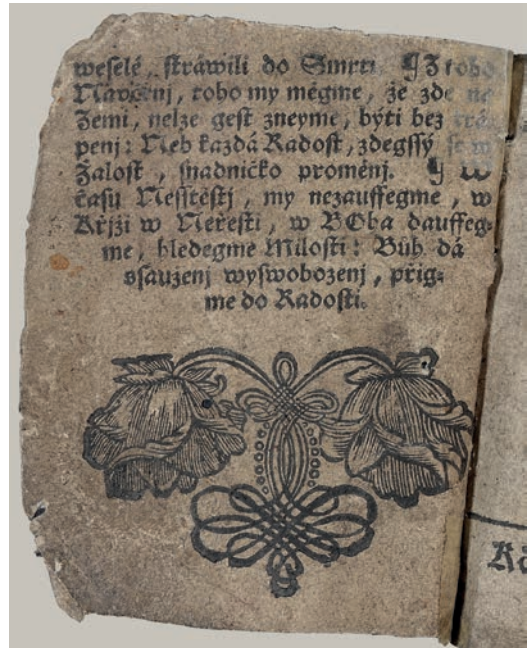 weselé, stráwili do Smrti. ¶ Z toho
Naučenj, toho my mégme, že zde na
Zemi, nelze gest zneyme, býti bez trá-
penj: Neb každá Radost, zdegssý se w
Žalost, snadničko proměnj. ¶ W
času Nesstěstj, my nezauffegme, w
Křjži w Neřesti, w BOha dauffeg-
me, hledegme Milosti: Bůh dá
ssauženj wyswobozenj, přig-
me do Radosti.